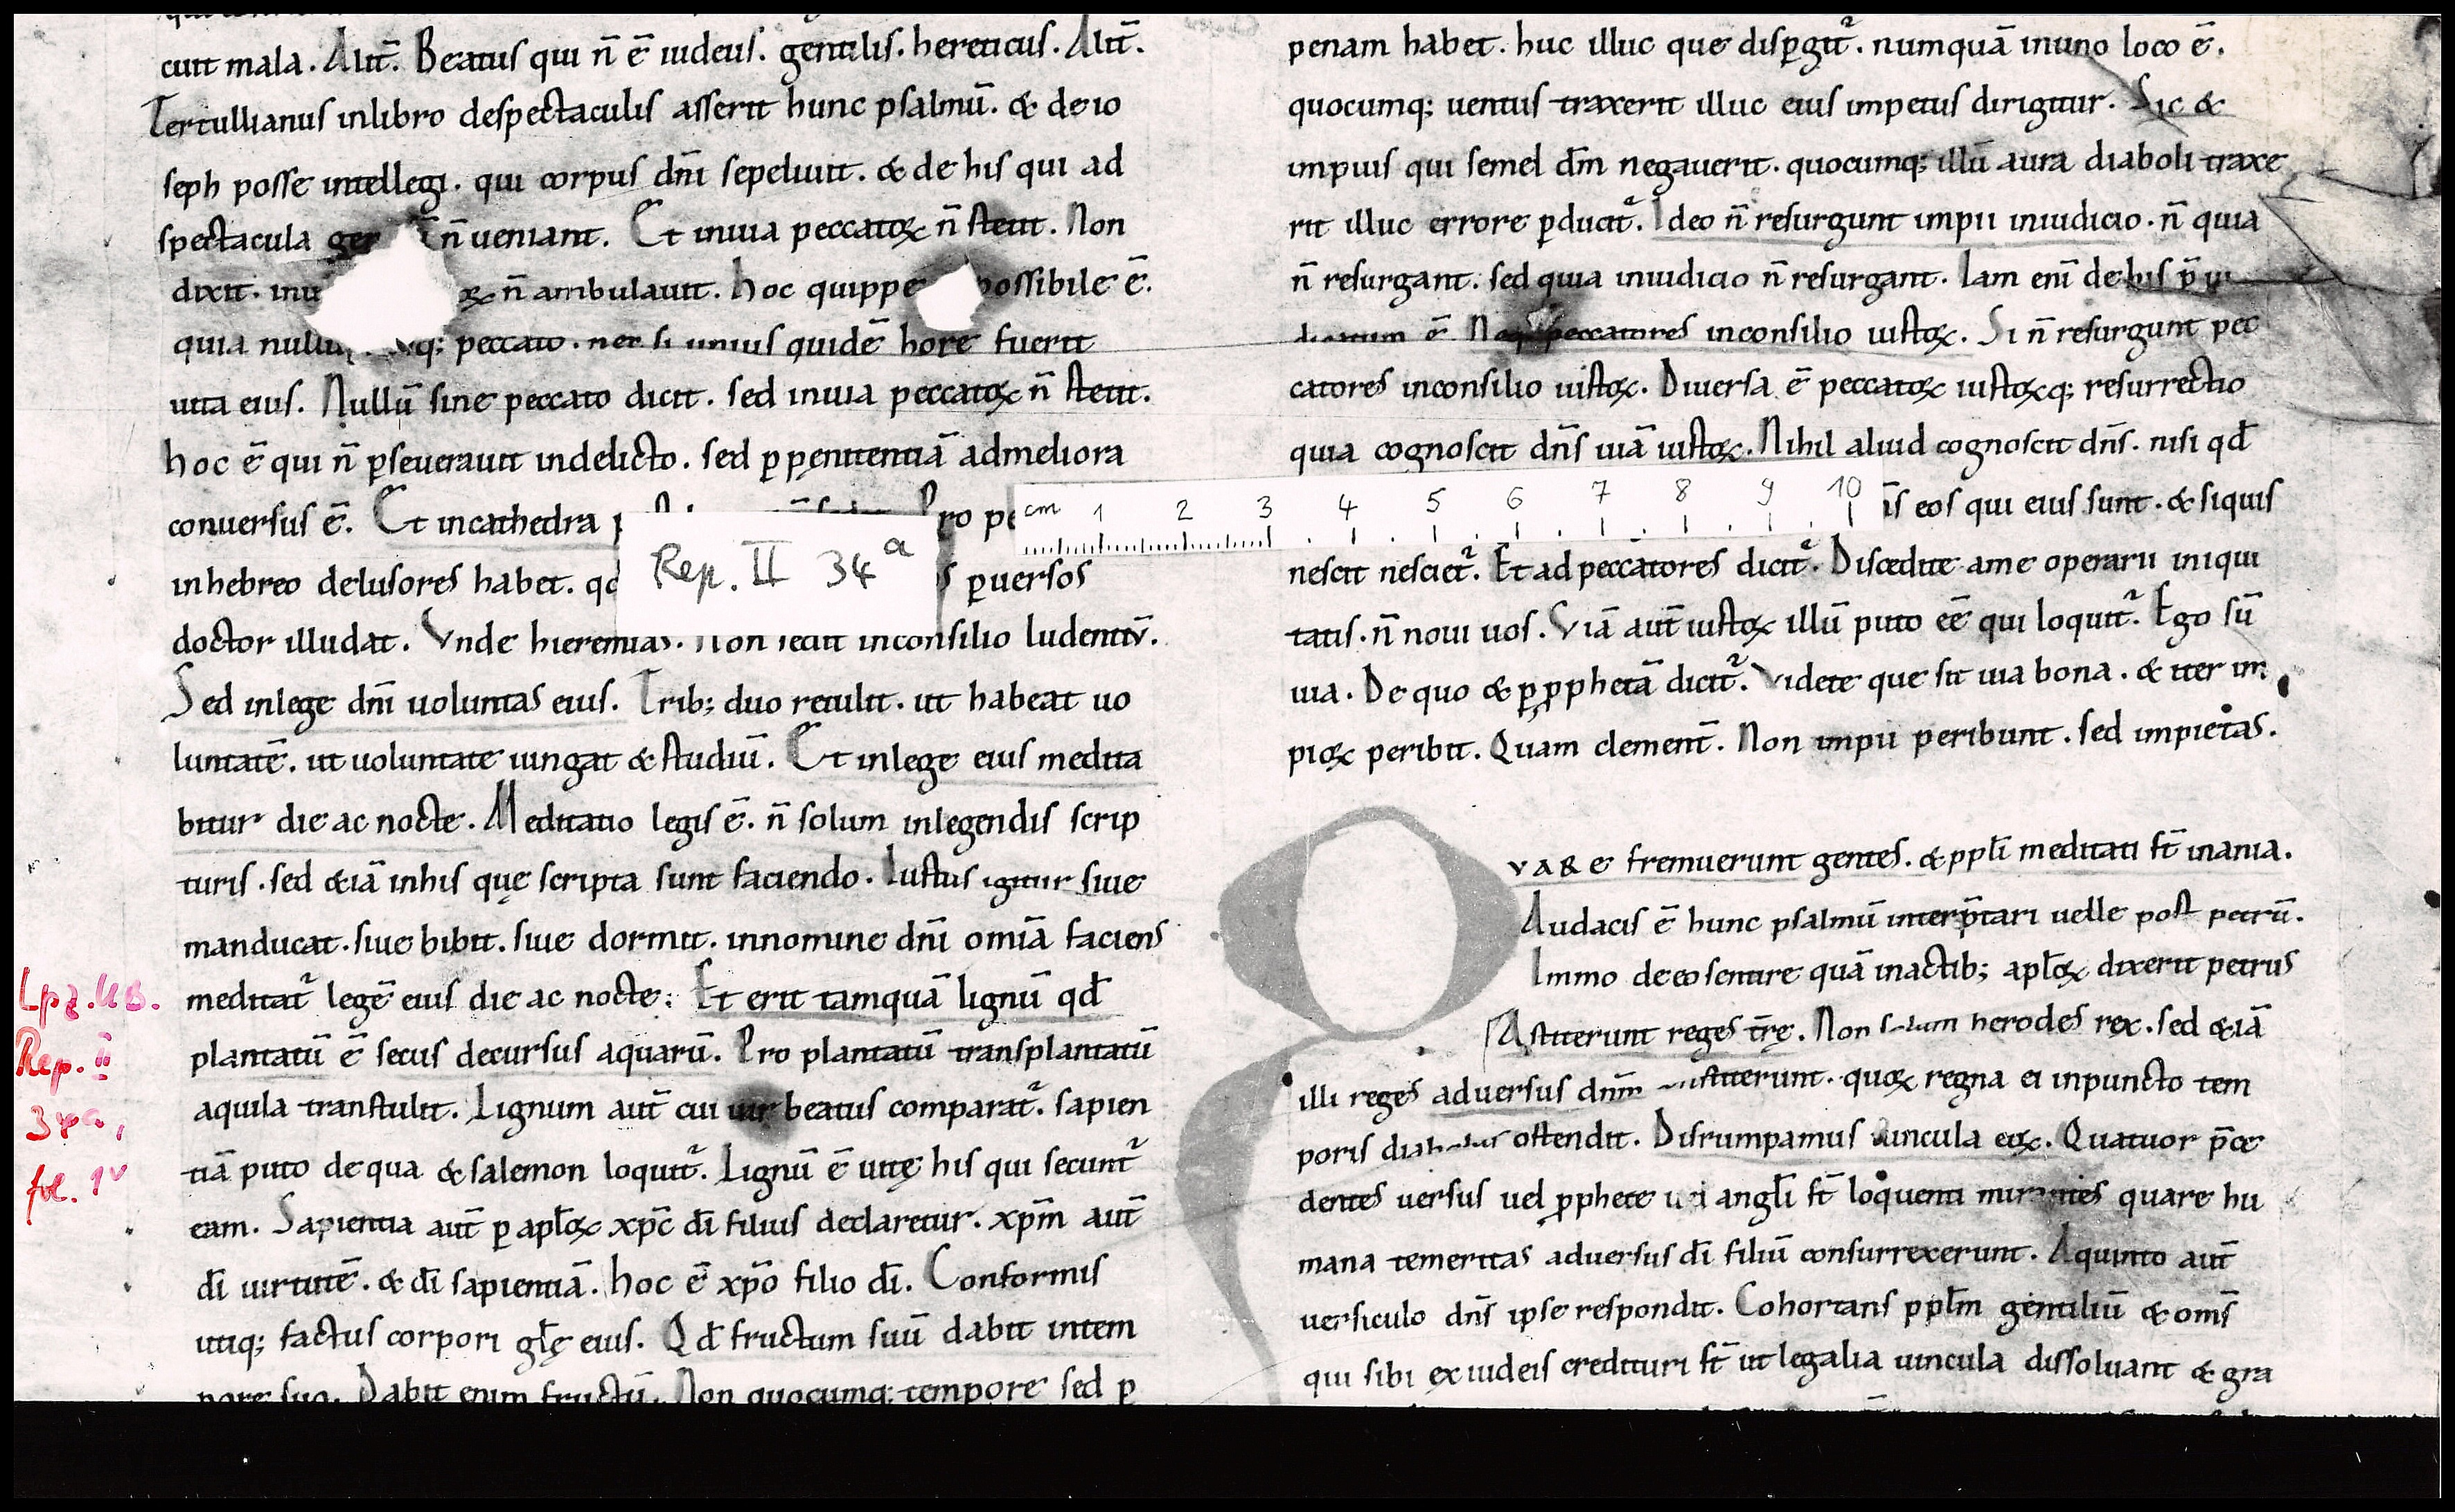 cutt mala. Alit̄. Beatus qui n̄ ē iudeus. gentilis. hereticus. Alit̄.
Tertullianus inlibro despectaculis asserit hunc psalmū. & deio
seph posse intellegi. qui corpus dn̄i sepeliuit. & de his qui ad
spectacula n̄ ueniant. Et inuia peccatoꝝ n̄ stetit. Non
dixit. n̄ ambulauit. hoc quippe ē.
quia peccato. nec si unius quidē hore fuerit
uita eius. Nullū sine peccato dicit. sed inuia peccatoꝝ n̄ stetit.
hoc ē qui n̄ ꝑseuerauit indelicto. sed ꝑ pęnitentiā admeliora
conuersus ē. Et incathedra
inhebreo delusores habet. ꝑuersos
doctor illudat. Vnde hieremias. Non sedit inconsilio ludentiū.
Sed inlege dn̄i uoluntas eius. Trib; duo retulit. ut habeat uo
luntatē. ut uoluntate iungat & studiū. Et inlege eius medita
bitur die ac nocte. Meditatio legis ē. n̄ solum inlegendis scrip
turis. sed &iā inhis quę scripta sunt faciendo. Iustus igitur siue
manducat. siue bibit. siue dormit. innomine dn̄i omīa faciens
meditat᷑ legē eius die ac nocte. Et erit tamquā lignū qd̄
plantatū ē secus decursus aquarū. Pro plantatū transplantatū
aquila transtulit. Lignum aut̄ cui uir beatus comparat᷑. sapien
tiā puto dequa & salemon loquit᷑. Lignū ē uitę his qui secunt᷑
eam. Sapientia aut̄ ꝑ apl̄oꝝ xpc̄ dī filius declaretur. xpm̄ aut̄
dī uirtutē. & dī sapientiā. hoc ē xpō filio dī. Conformis
utiq; factus corpori gl̄ę eius. Qd̄ fructum suū dabit intem
pore suo. Dabit enim fructū. Non quocumq; tempore sed ꝑ
penam habet. huc illuc que disꝑgit᷑. numquā inuno loco ē.
quocumq; uentus traxerit illuc eius impetus dirigitur. Sic &
impius qui semel dm̄ negauerit. quocumq; illū aura diaboli traxe
rit illuc errore ꝑducit᷑. Ideo n̄ resurgunt impii iniudicio. n̄ quia
n̄ resurgant. sed quia iniudicio n̄ resurgant. Iam eni᷒ de his p̄iu
dicatum ē. Neq; peccatores inconsilio iustoꝝ. Si n̄ resurgunt pec
catores inconsilio iustoꝝ. Diuersa ē peccatoꝝ iustoꝝq; resurrectio
quia cognoscit dn̄s uiā iustoꝝ. Nihil aliud cognoscit dn̄s. nisi qd̄
eos qui eius sunt. & siquis
nescit nesciet᷑. Et ad peccatores dicit᷑. Discedite ame operarii iniqui
tatis. n̄ noui uos. Viā aut̄ iustoꝝ illū puto eē qui loquit᷑. Ego sū
uia. De quo & ꝑ ꝓphetā dicit᷑. Videte que sit uia bona. & iter im
pioꝝ peribit. Quam clement̄. Non impii peribunt. sed impietas.
QVARE fremuerunt gentes. & ppl̄i meditati st̄ inania.
Audacis ē hunc psalmū interp̄tari uelle post petrū.
Immo deeo sentire quā inactib; apl̄oꝝ dixerit petrus
Astiterunt reges tr̄ę. Non solum herodes rex. sed &iā
illi reges aduersus dnm̄ astiterunt. quoꝝ regna ei inpuncto tem
poris diabolus ostendit. Disrumpamus uincula eoꝝ. Quatuor p̄ce
dentes uersus uel ꝓphete uel angl̄i st̄ loquenti mirantes quare hu
mana temeritas aduersus dī filiū consurrexerunt. Aquinto aut̄
uersiculo dn̄s ipse respondit. Cohortans ppl̄m gentiliū & oms̄
qui sibi ex iudeis credituri st̄ ut legalia uincula dissoluant & gra
cm 1 2 3 4 5 6 7 8 9 10
Rep. II 34ª
Lpz. UB.
Rep. II
34ª,
fol. 1ᵛ